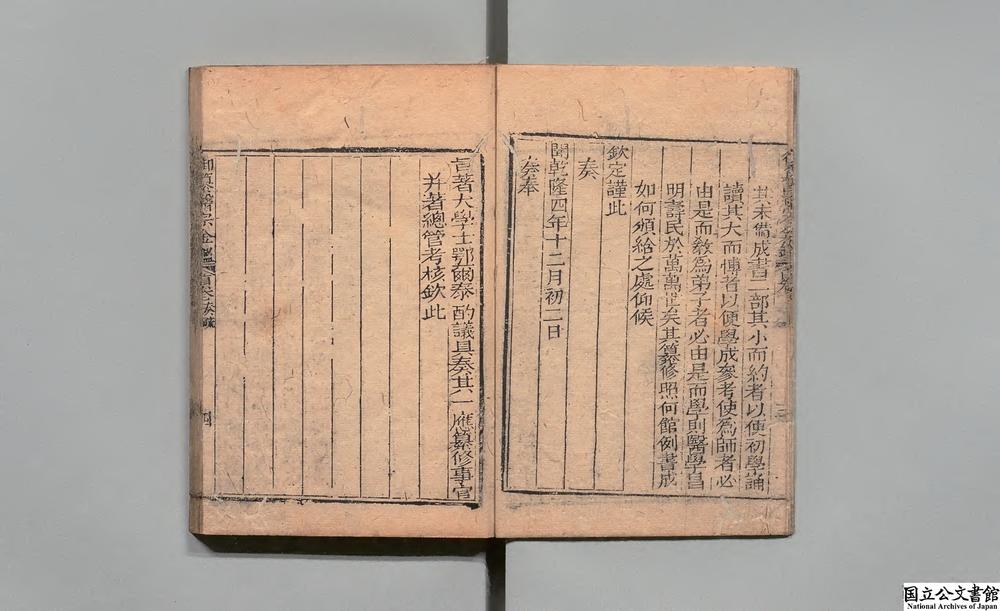 其未備成書二部其小而約者以便初學誦
讀其大而博者以便學成叅考使為師者必
由是而教為弟子者必由是而學則醫學昌
明壽民於萬萬世矣其纂修照何館例書成
如何頒給之處仰候
欽定謹此
奏
聞乾隆四年十二月初二日
奏奉
旨著大學士鄂爾泰酌議具奏其一應纂修事宜
并著總管考核欽此
御纂醫宗金鑑
首卷奏議
四
国立公文書館
National Archives of Japan